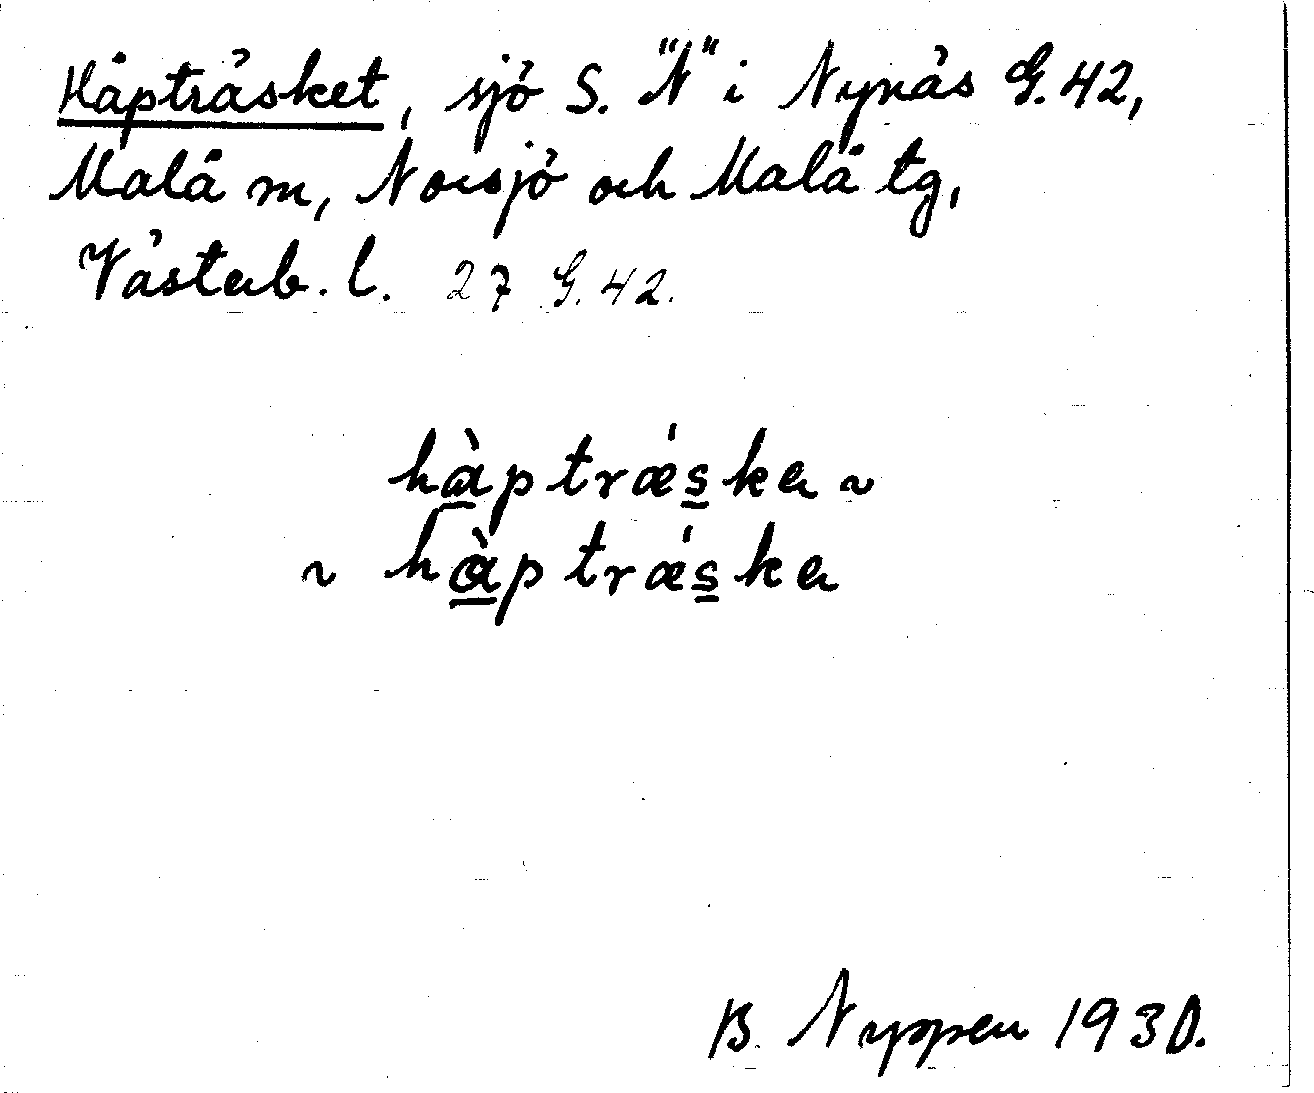 Håpträsket, sjö S. "N" i Nynäs G. 42,
Malå m, Norsjö och Malå tg,
Västerb. l. 27 G. 42.
hàptrǽska ~
~ hàptrǽska
B. Nyppen 1930.